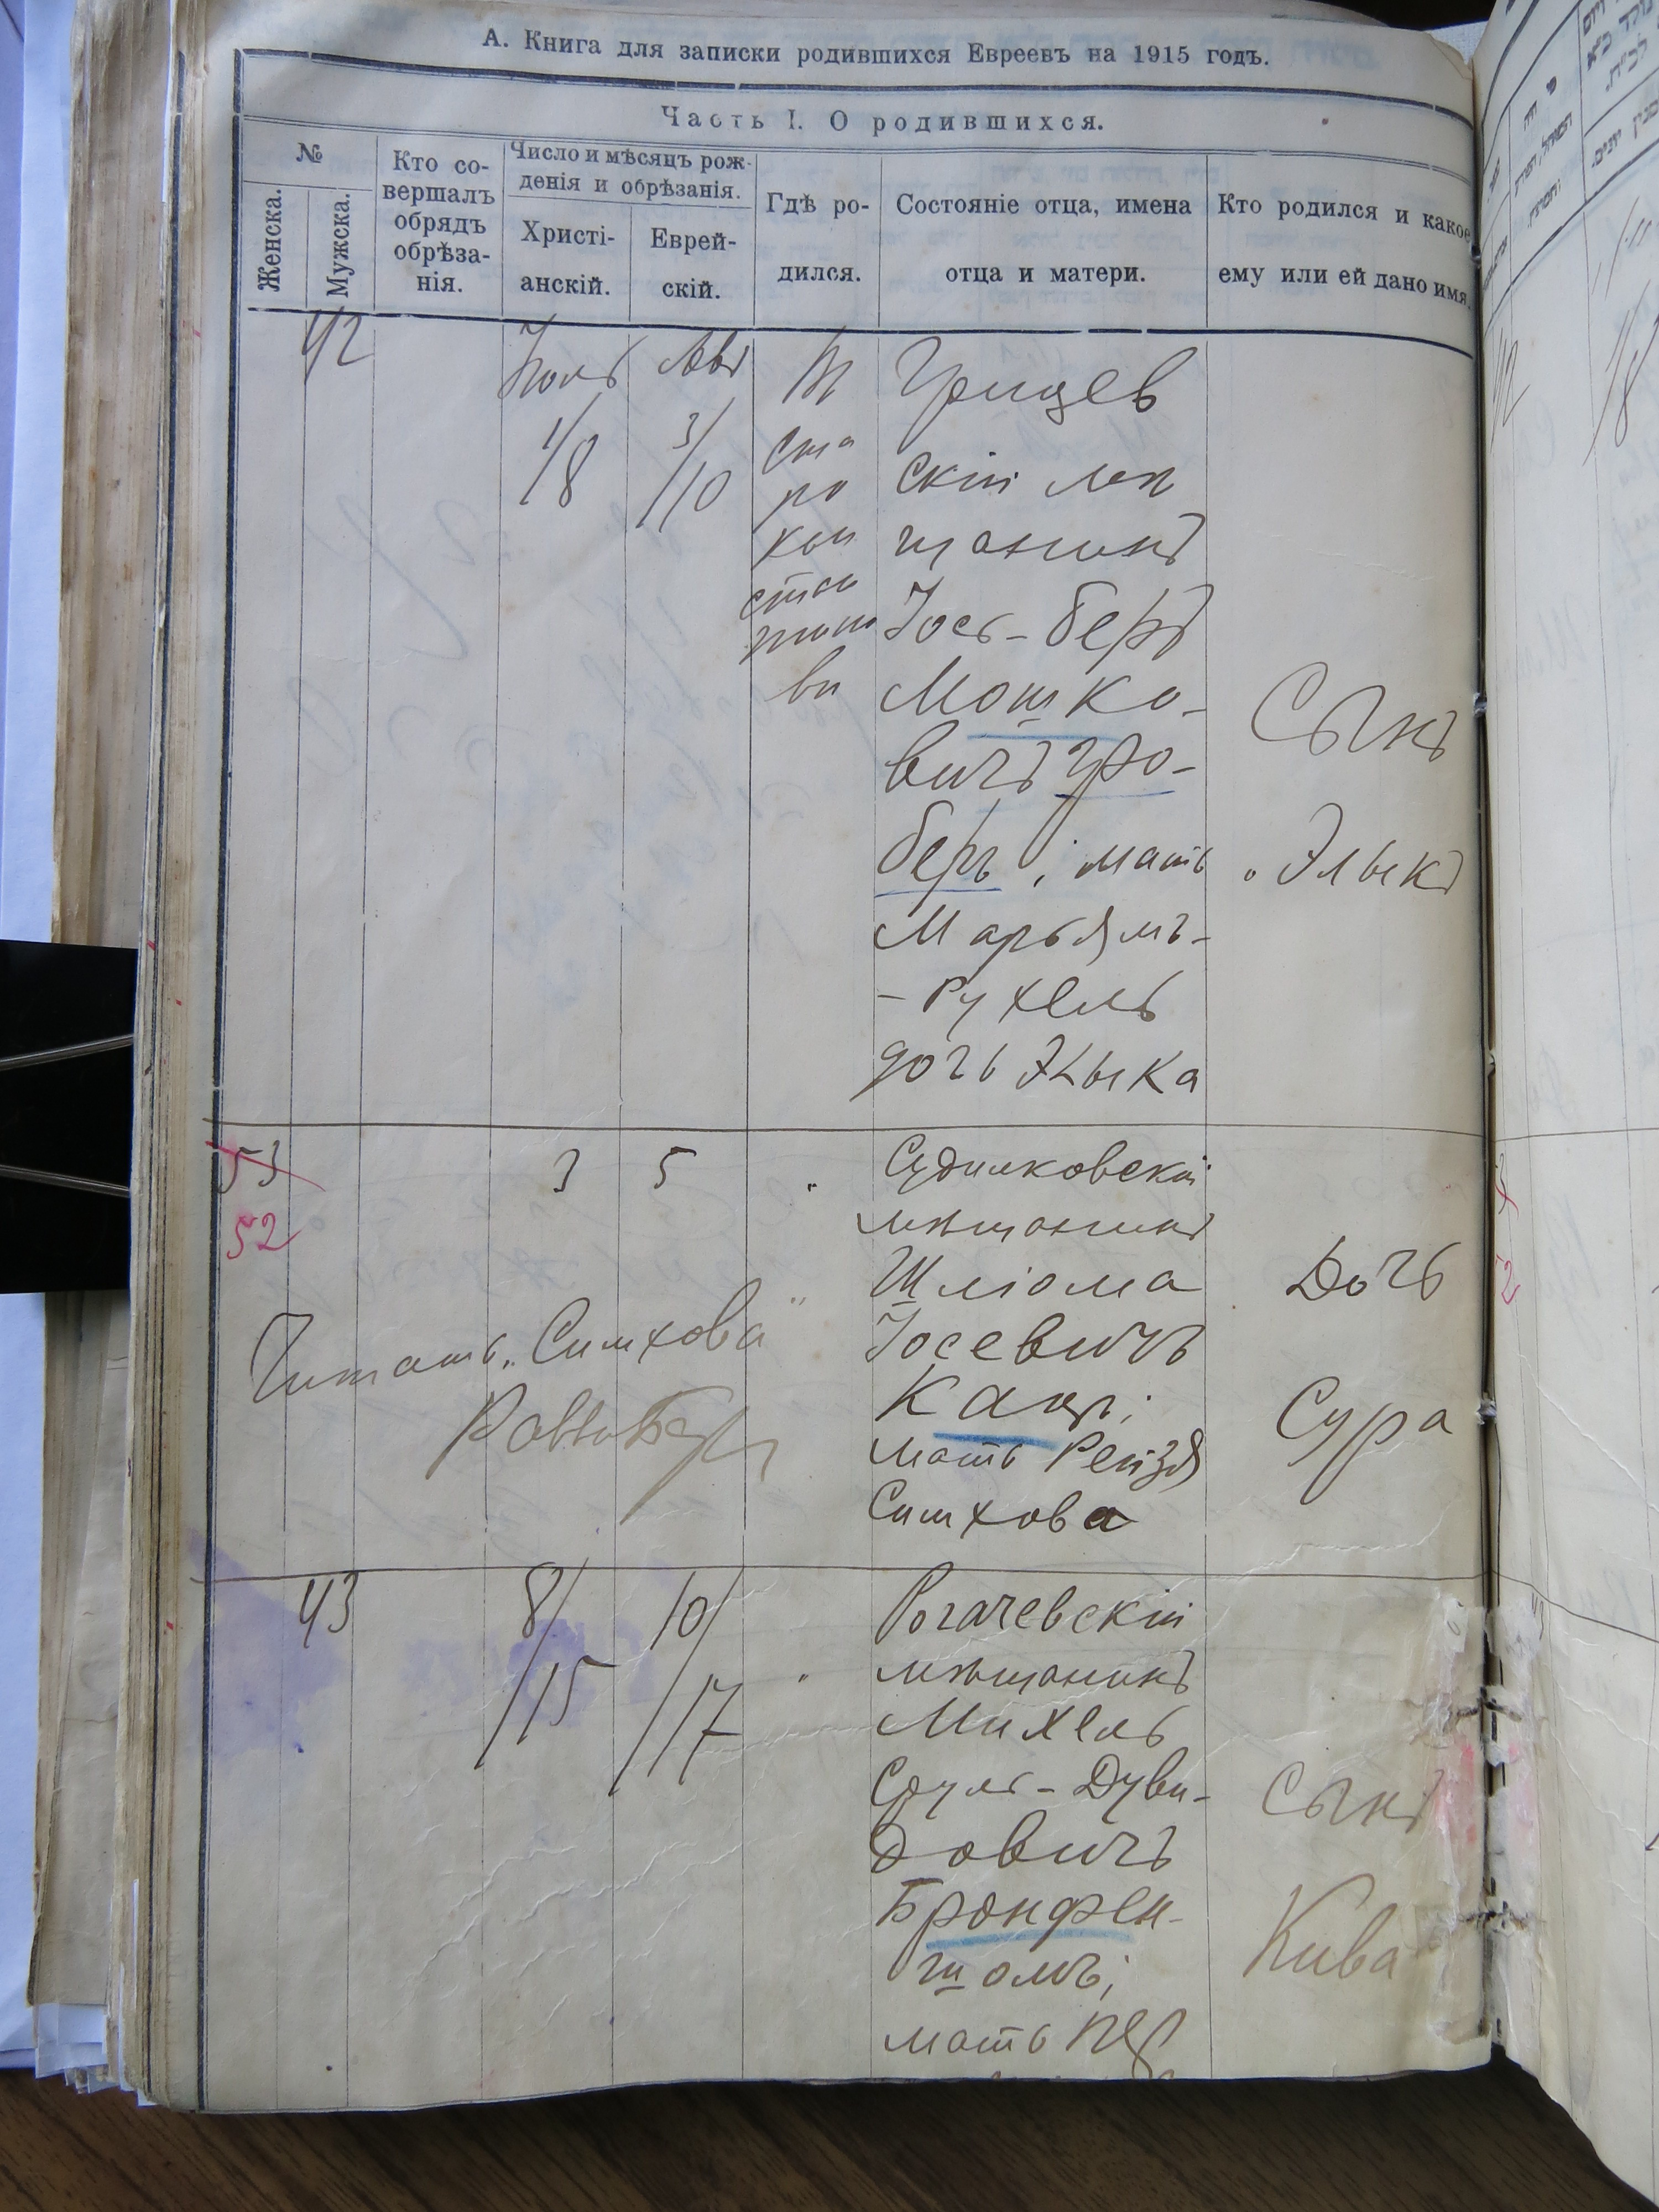 А. Книга для записки родившихся Евреевъ на 1915 годъ.
Часть I. О родившихся.
№
Женска.
Мужска.
Кто со-
вершалъ
обрядъ
обрѣза-
нія.
Число и мѣсяцъ рож-
денія и обрѣзанія.
Христі-
анскій.
Еврей-
скій.
Гдѣ ро-
дился.
Состояніе отца, имена
отца и матери.
Кто родился и какое
ему или ей дано имя.
42
Іюль
1/8
Авъ
3/10
М
Ста
ро
кон
стан
тино
ви
Грицев
скій мѣ
щанинъ
Іось-Беръ
Мошко-
вичъ Гро-
беръ; мать
Марьямъ-
-Рухель
дочь Элыка
Сынъ
Элыкъ
53
52
3
5
"
Судилковскій
мѣщанинъ
Шліома
Іосевичъ
Кацъ;
мать Рейзя
Симхова
Дочь
Сура
Читать „Симхова"
43
8/15
10/17
"
Рогачевскій
мѣщанинъ
Михель
Сруль-Дуви-
довичъ
Бронфен-
шолъ;
мать Пер
Сынъ
Кива